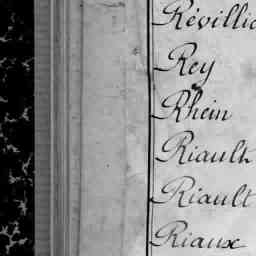 Révillio
Rey
Rhein
Riault
Riault
Riaux